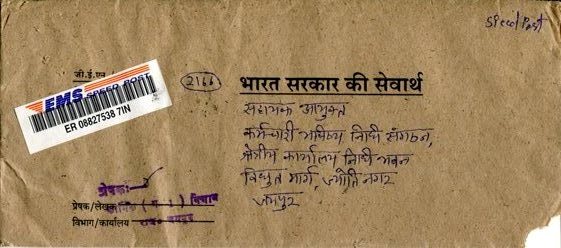 Speed Post
जी.ई.एन
2166
भारत सरकार की सेवार्थ
EMS SPEED POST
ER 08827538 7IN
सहायक आयुक्त
कर्मचारी भविष्य निधी संगठन,
क्षेत्रीय कार्यालय निधी भवन
विद्युत मार्ग, ज्योति नगर
जयपुर
प्रेषकः
प्रेषक/लेखक विभाग
विभाग/कार्यालय